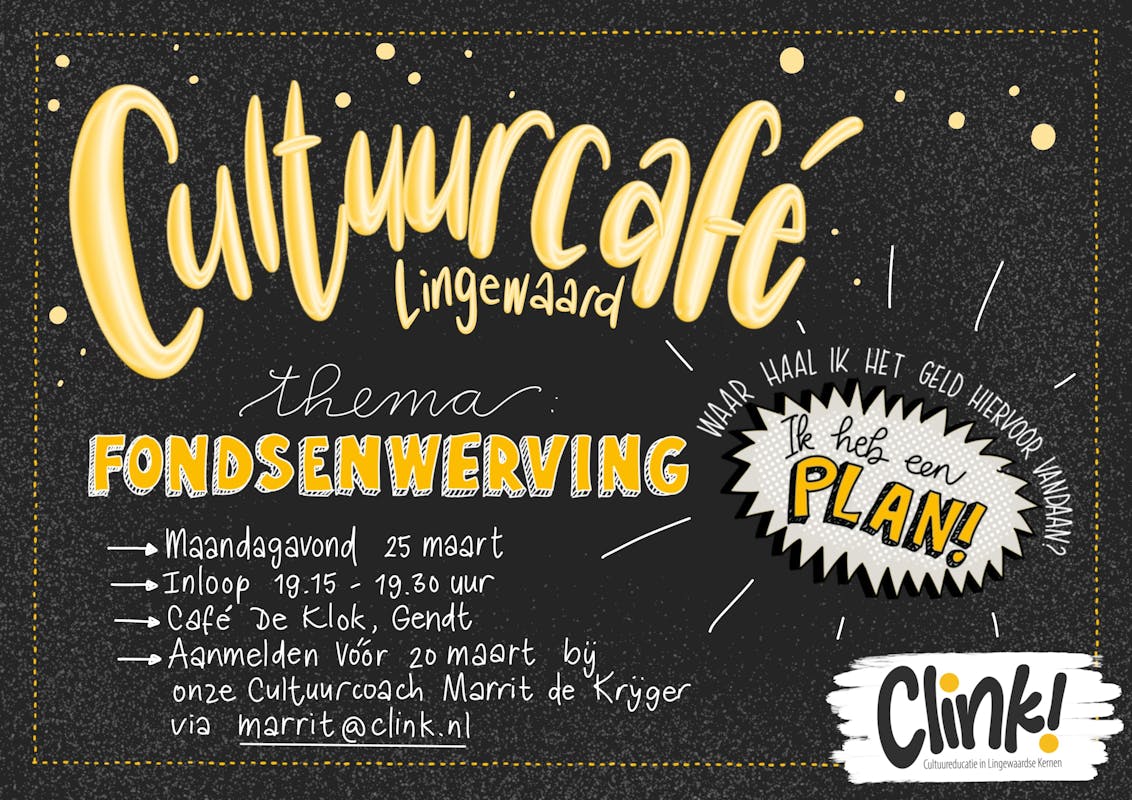 Cultuurcafé
Lingewaard
thema:
FONDSENWERVING
Maandagavond 25 maart
Inloop 19.15 - 19.30 uur
Café De Klok, Gendt
Aanmelden vóór 20 maart bij
onze Cultuurcoach Marrit de Krijger
via marrit@clink.nl
WAAR HAAL IK HET GELD HIERVOOR VANDAAN?
Ik heb een
PLAN!
Clink!
Cultuureducatie in Lingewaardse Kernen